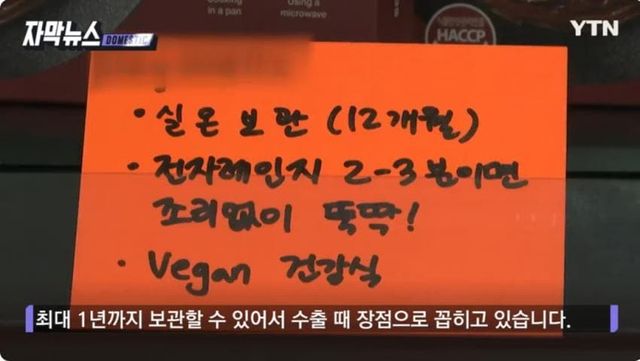 Cooking
in a pan
Using a
microwave
HACCP
자막뉴스
DOMESTIC
YTN
• 실온 보관 (12개월)
• 전자레인지 2-3분이면
조리없이 뚝딱!
• Vegan 건강식
최대 1년까지 보관할 수 있어서 수출 때 장점으로 꼽히고 있습니다.